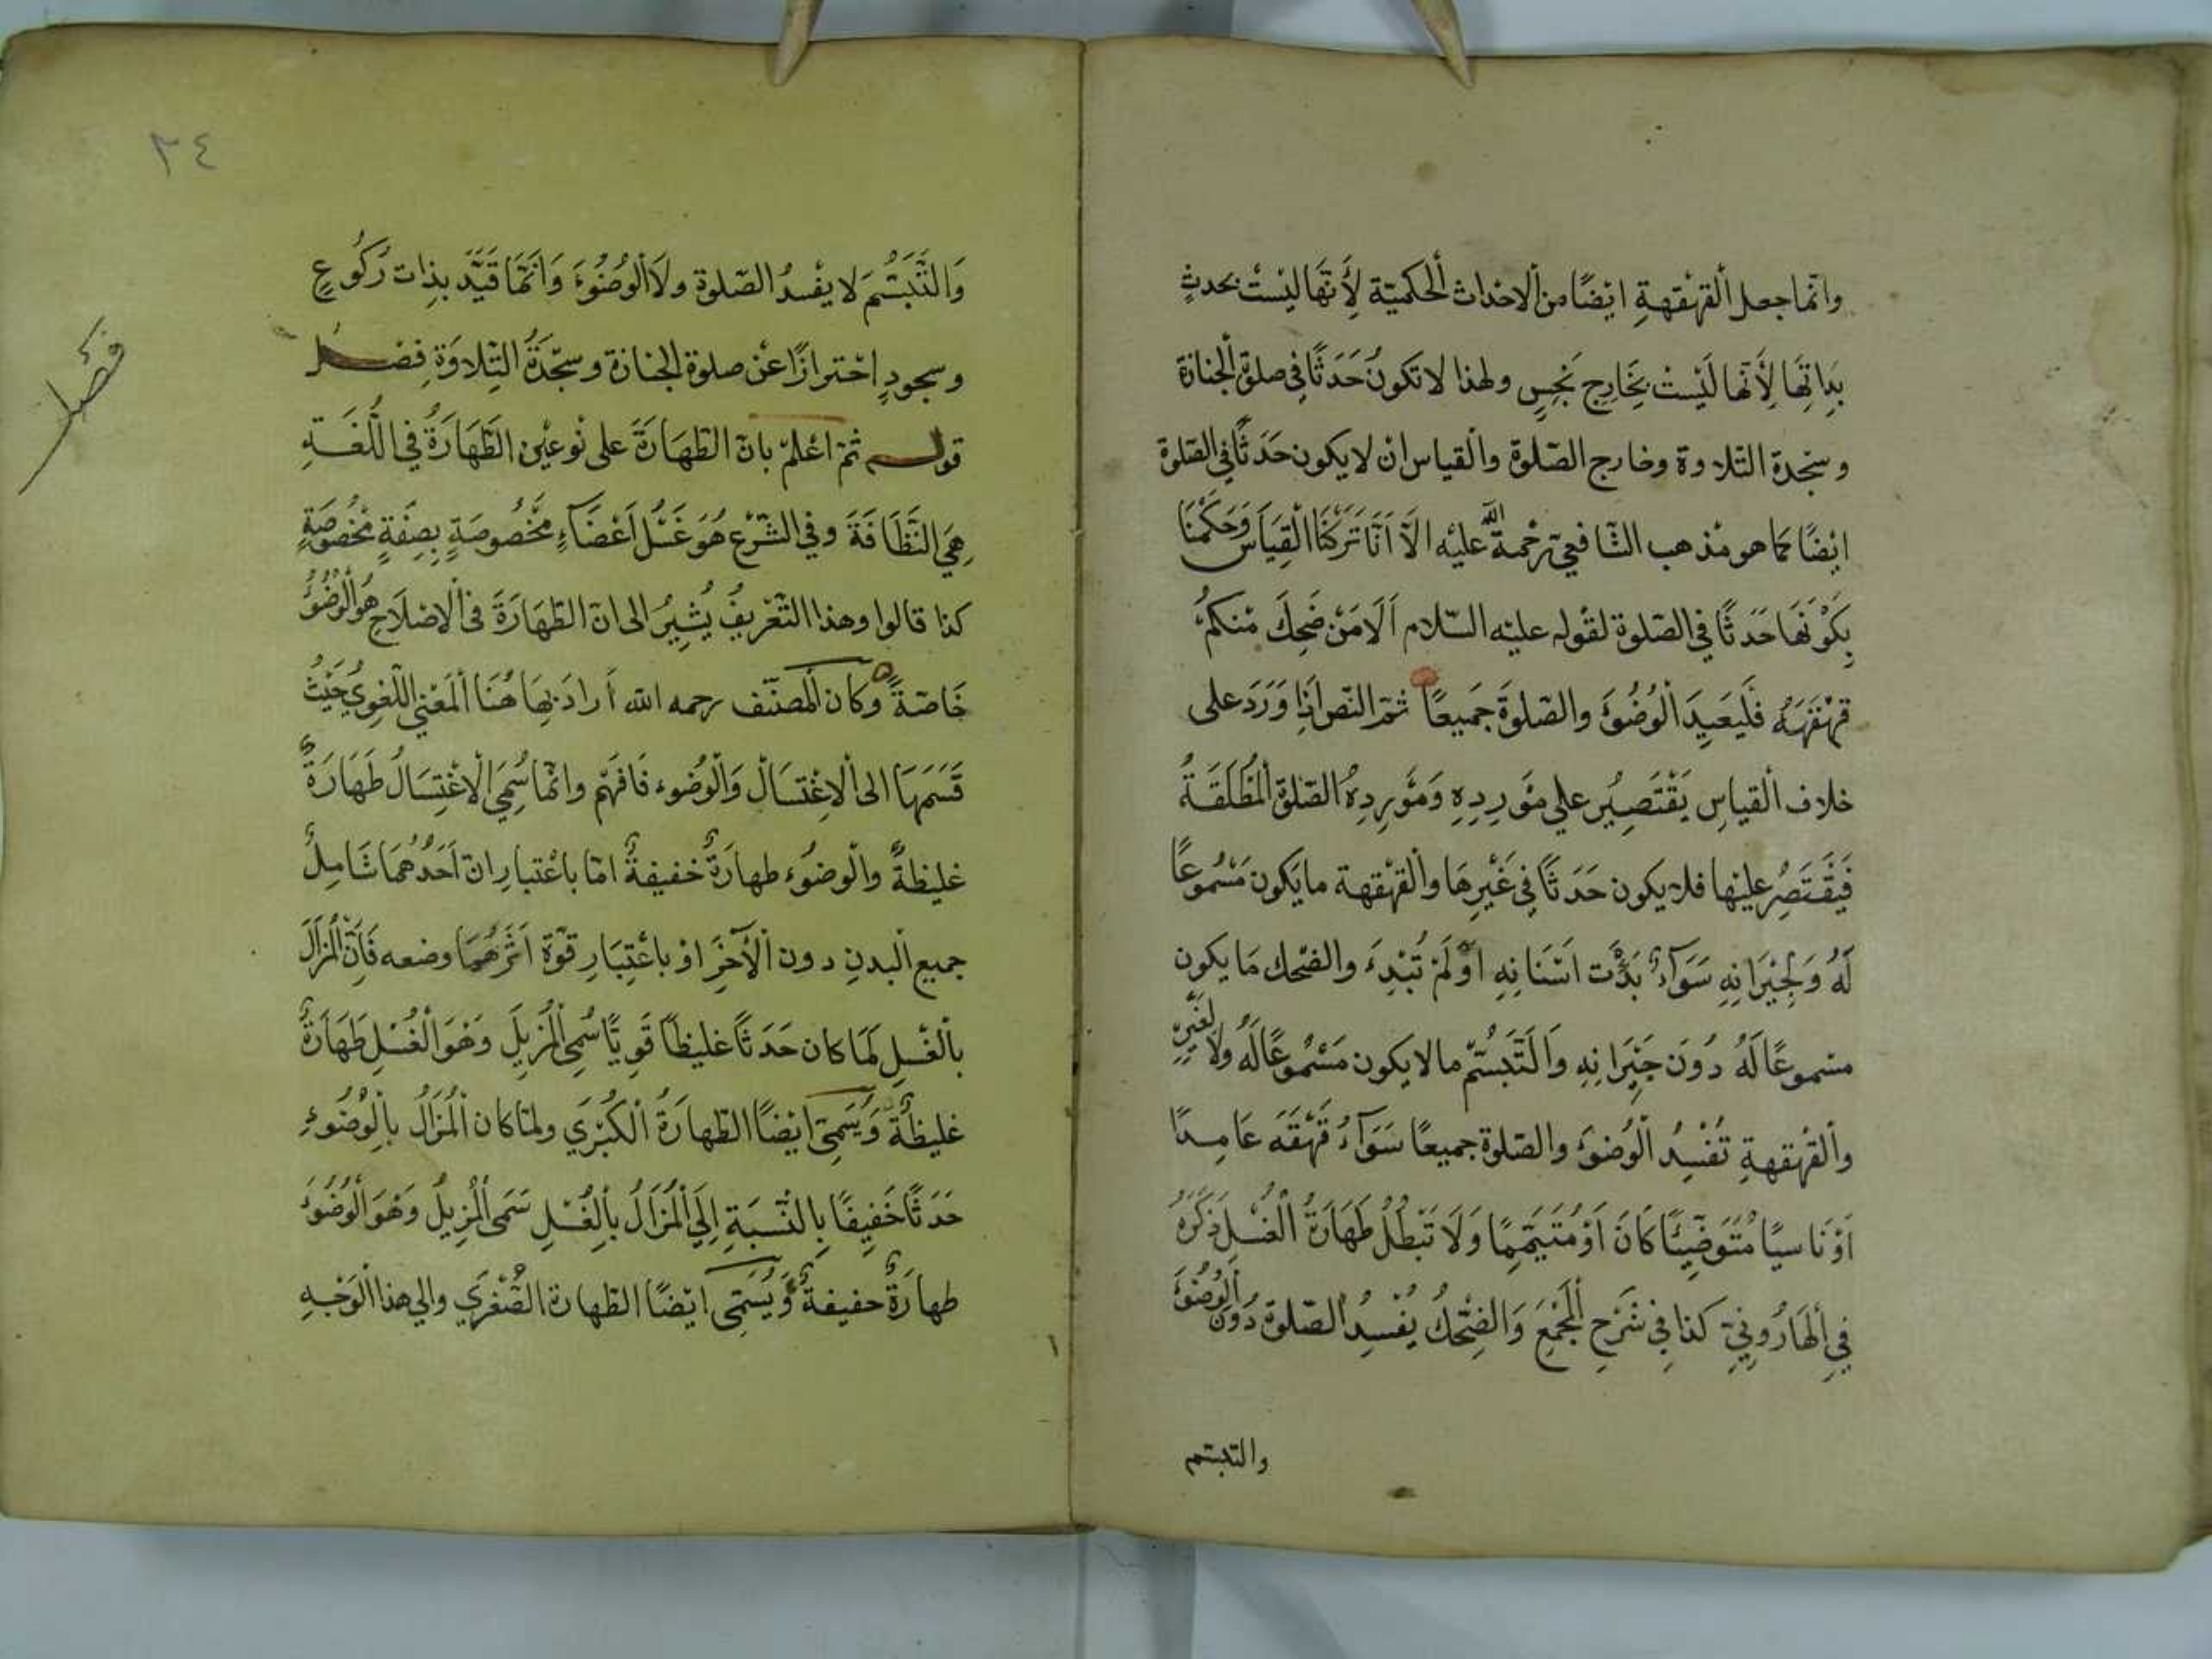 وانما جعل القهقهة ايضا من الاحداث الحكمية لأنها ليست بحدث
بذاتها لأنها ليست بخارج نجس ولهذا لا تكون حدثا في صلوة الجنازة
وسجدة التلاوة وخارج الصلوة والقياس ان لا يكون حدثا في الصلوة
ايضا كما هو مذهب الشافعي رحمة الله عليه الا انا تركنا القياس وحكمنا
بكونها حدثا في الصلوة لقوله عليه السلام ألا من ضحك منكم
قهقهه فليعيد الوضوء والصلوة جميعا ثم النص اذا ورد على
خلاف القياس يقتصير على مورده ومورده الصلوة المطلقة
فيقتصر عليها فلا يكون حدثا في غيرها والقهقهة ما يكون مسموعا
له ولجيرانه سواء بدت اسنانه او لم تبدء والضحك ما يكون
مسموعا له دون جيرانه والتبسم ما لا يكون مسموعا له ولا لغيره
والقهقهة تفسد الوضوء والصلوة جميعا سواء قهقه عامدا
او ناسيا متوضيئا كان او متيمما ولا تبطل طهارة الغسل ذكره
في الهاروني كذا في شرح المجمع والضحك يفسد الصلوة دون الوضوء
والتبسم
٣٤
والتبسم لا يفسد الصلوة ولا الوضوء وانما قيد بذات ركوع
وسجود احترازا عن صلوة الجنازة وسجدة التلاوة فصل
فصل
قوله ثم اعلم بان الطهارة على نوعين الطهارة في اللغة
هي النظافة وفي الشرع هو غسل اعضاء مخصوصة بصفة مخصوصة
كذا قالوا وهذا التعريف يشير الى ان الطهارة في الاصلاح هو الوضوء
خاصة وكان المصنف رحمه الله أراد بها هنا المعني اللغوي حيث
قسمها الى الاغتسال والوضوء فافهم وانما سمي الاغتسال طهارة
غليظة والوضوء طهارة خفيفة اما باعتبار ان احدهما شامل
جميع البدن دون الآخر او باعتبار قوة اثرهما وضعه فان المزال
بالغسل لما كان حدثا غليظا قويا سمي المزيل وهو الغسل طهارة
غليظة ويسمى ايضا الطهارة الكبري ولما كان المزال بالوضوء
حدثا خفيفا بالنسبة إلى المزال بالغسل سمى المزيل وهو الوضوء
طهارة حفيفة ويسمى ايضا الطهارة الصغري والي هذا الوجه